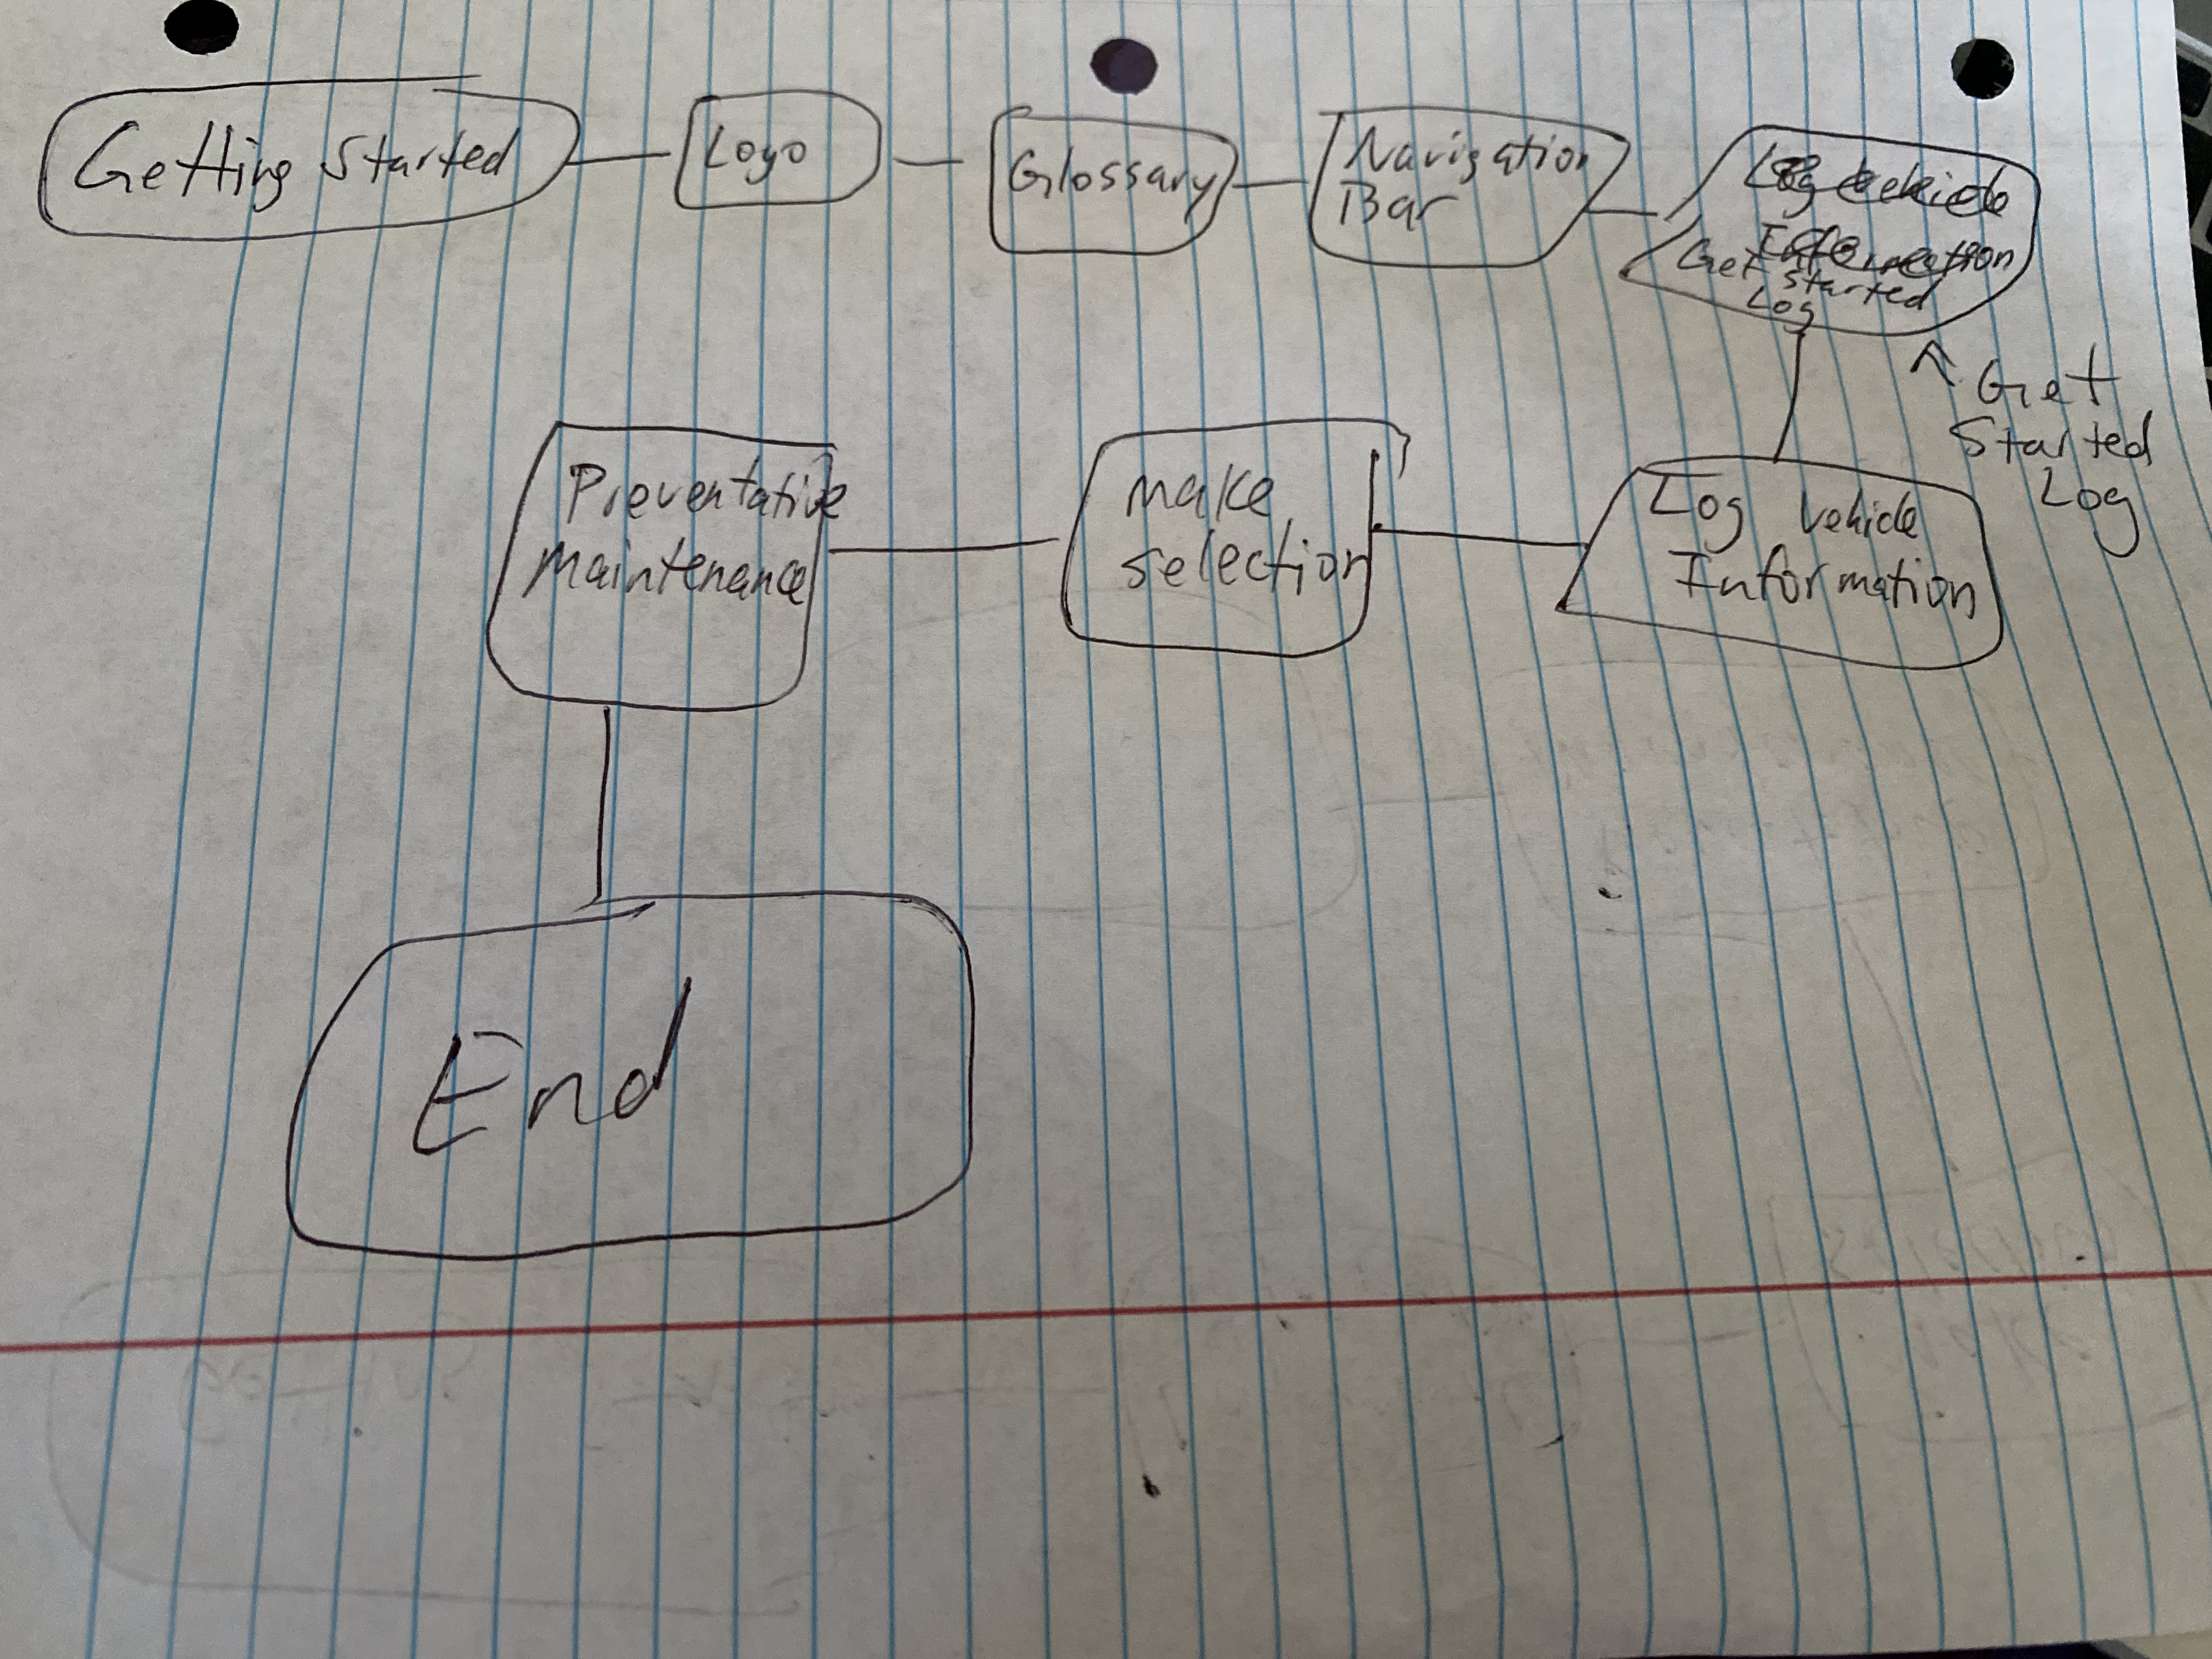 Getting Started
Logo
Glossary
Navigation
Bar
Log vehicle
Information
Get started
Log
^ Get
Started
Log
Log vehicle
Information
make
selection
Preventative
Maintenance
End